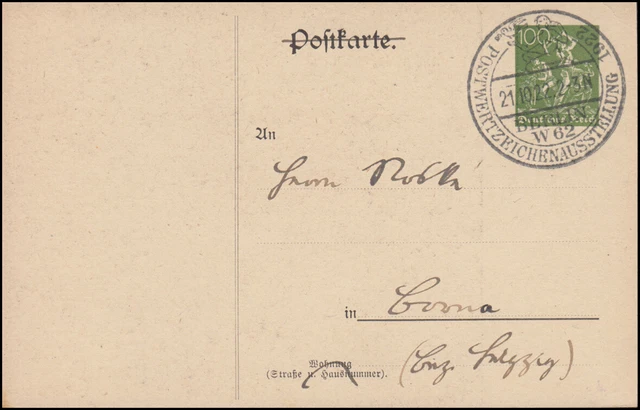 Postkarte.
100
Deutsches Reich
POSTWERTZEICHENAUSSTELLUNG
1922
21.10.22. 2-3N
BERLIN
W 62
An
Herrn
in Borna
(bez. Leipzig)
Wohnung
(Straße u. Hausnummer).